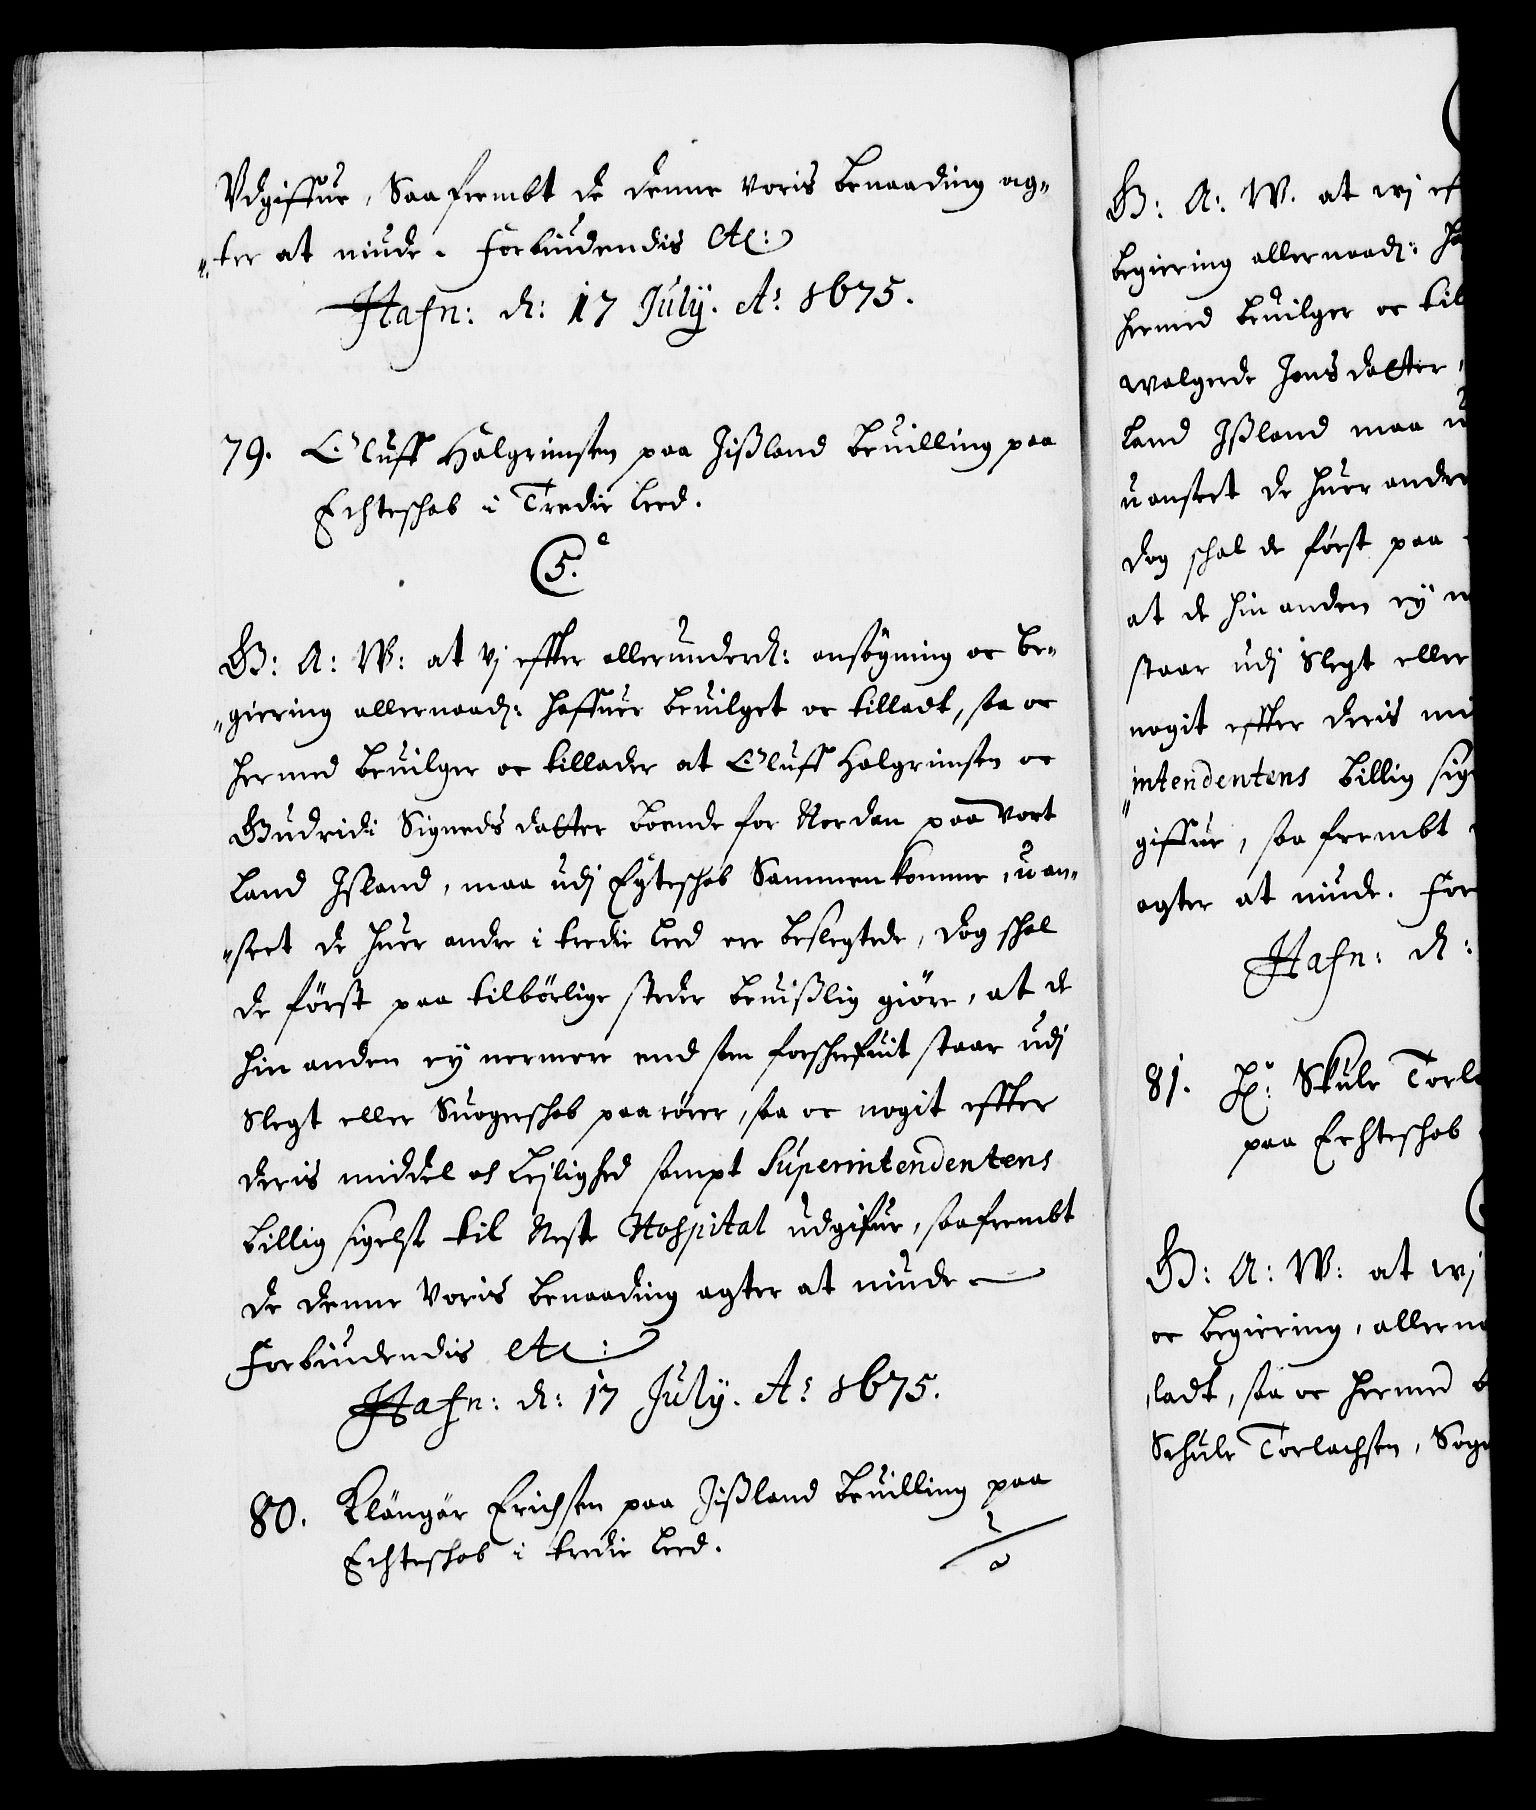 Vdgiffue, Saa frembt de denne voris benaading ag„
„ter at niude. Forbiudendis etc:
Hafn: d: 17 July. Ao 1675.
79. Oluff Halgrimsen paa Jißland bevilling paa
Echteschab i Tredie leed.
C5.
G: A: W: at Vj effter allerunderd: ansögning oc be„
„giering allernaad: haffuer bevilget oc tilladt, saa oc
hermed bevilger oc tillader at Oluff Halgrimsen oc
Gudridi Signeds datter boende for Norden paa Vort
land Island, maa udj Egteschab Sammenkomme, u an„
„seet de huer andre i tredie leed ere beslegtede, dog schal
de först paa tilbörlige steder bevißlig giöre, at de
hin anden ey nermere end som forschrefuit staar udj
Slegt eller Suogerschab paarörer, saa oc nogit effter
deris middel och lejlighed sampt Superintendentens
billig sigelse til Neste Hospital udgifue, saafrembt
de denne Voris benaading agter at niude
Forbiudendis etc:
Hafn: d: 17 July. Ao 1675.
80. Klängür Erichsen paa Jißland bevilling paa
Echteschab i tredie leed.
G: A: W. at wj ef
begiering allernaad: ha
hermed bevilger oc til
Walgerde Jons datter,
land Ißland maa u
uanseet de huer andre
dog schal de först paa
at de hin anden ey n
staar udj Slegt eller
nogit effter deris mi
„intendentens billig sig
giffue, saa frembt
agter at niude. For
Hafn: d:
81. Hr: Skule Torl
paa Echteschab
G: A: W: at wj
oc begiering, allerna
ladt, saa oc hermed b
Schule Torlachsen, Sog